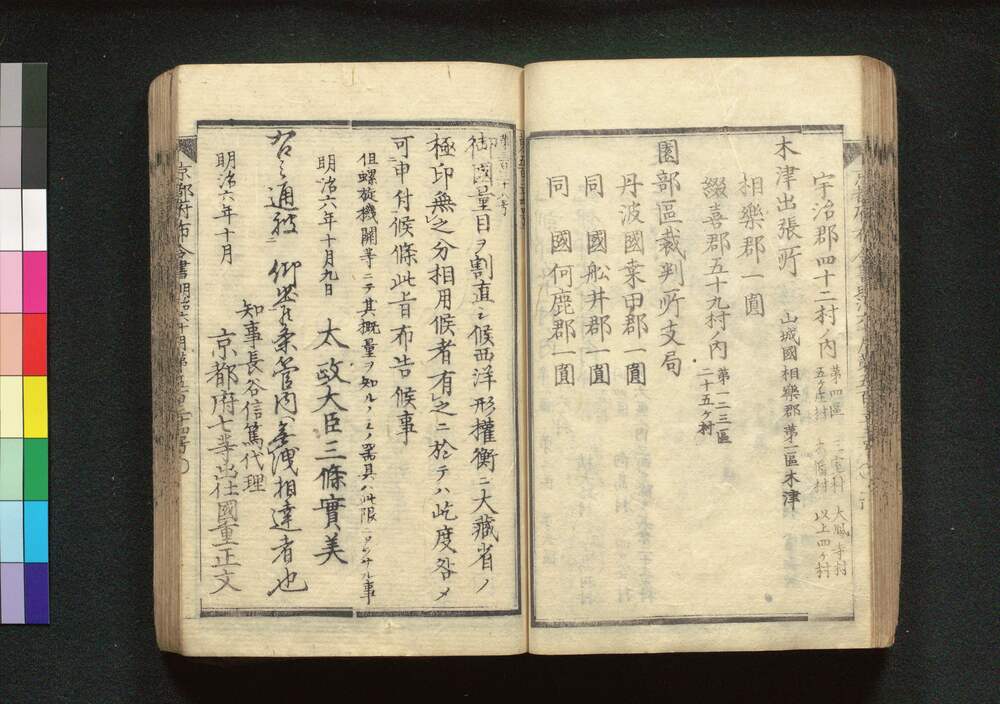 宇治郡四十二村ノ内 第四區 三宝村 大鳳寺村
五ケ庄村 以上四ケ村
木津出張所 山城國相樂郡第一區木津
相樂郡一圓
綴喜郡五十九村ノ内 第一二三區
二十五ケ村
園部區裁判所支局
丹波國桒田郡一圓
同 國船井郡一圓
同 國何鹿郡一圓
御國量目ヲ割直シ候西洋形權衡ニ大藏省ノ
極印無之分相用候者有之ニ於テハ屹度咎メ
可申付候條此旨布告候事
但螺旋機關等ニテ其概量ヲ知ルノミノ器具ハ此限ニアラサル事
明治六年十月九日 太政大臣三條實美
右之通被 仰出候条管内無洩相達者也
明治六年十月
知事長谷信篤代理
京都府七等出仕國重正文
京都府布令書明治六年十月第五百二十四号